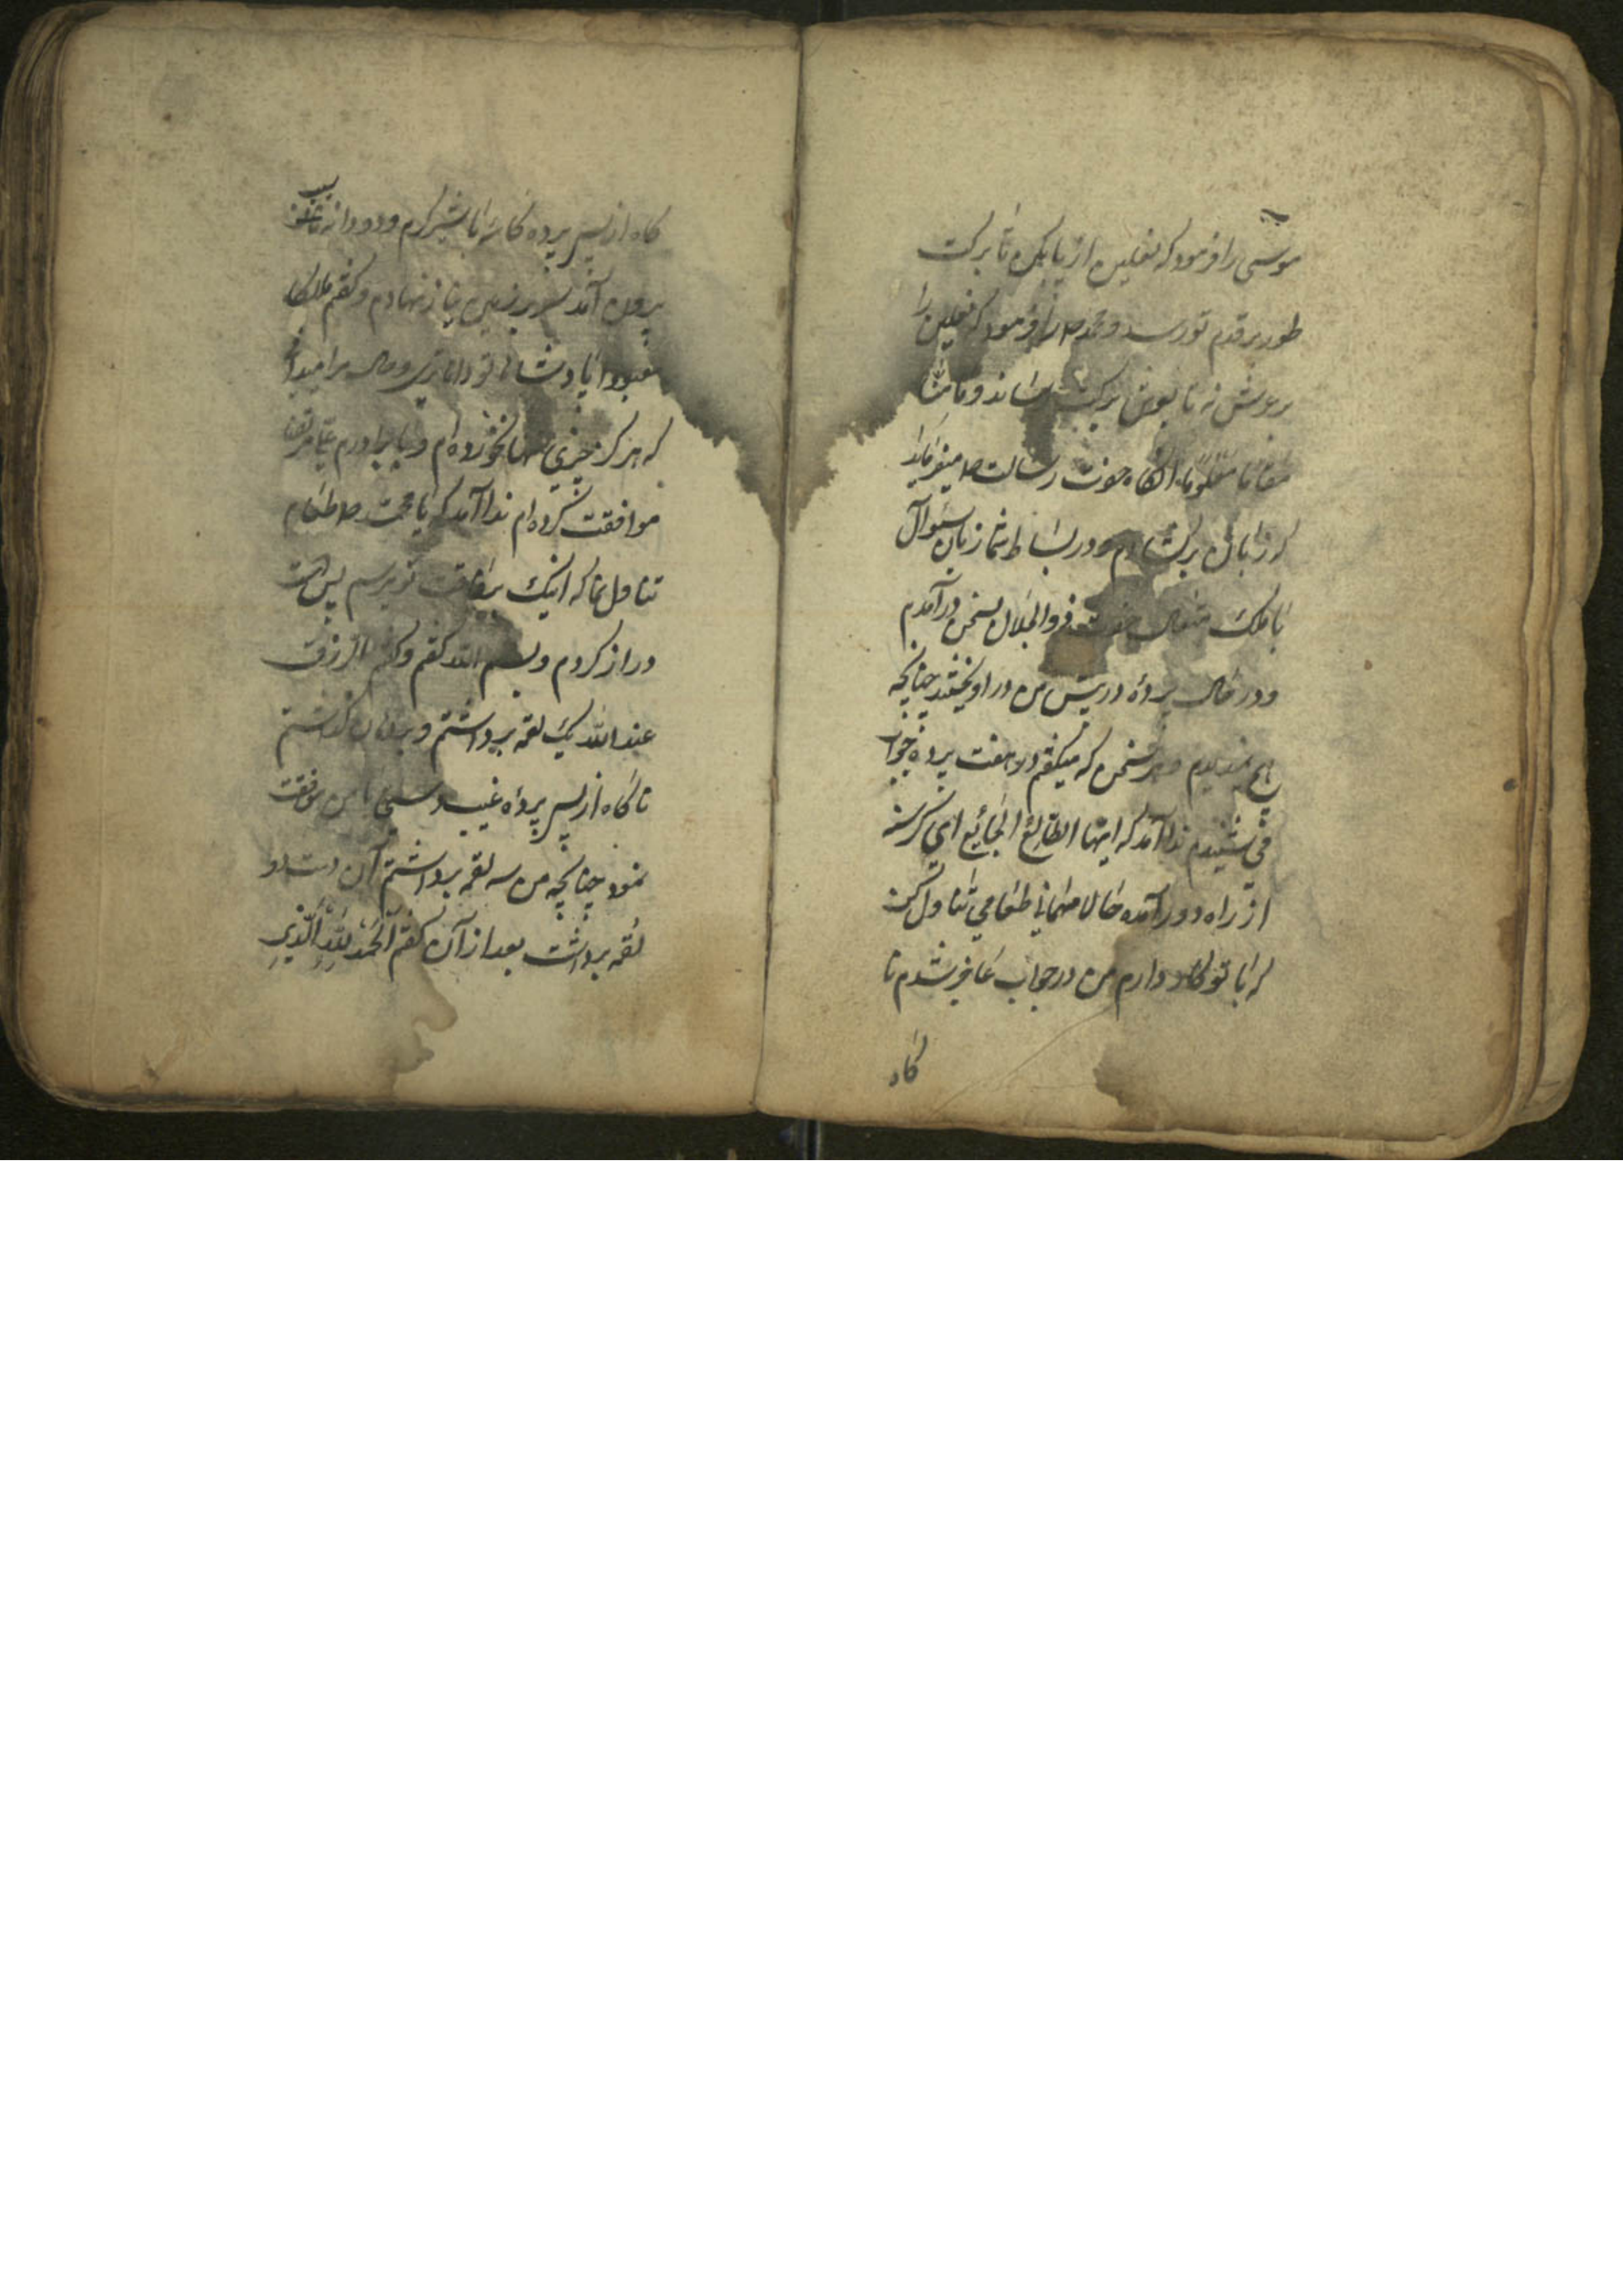 موسی را فرمود که نعلین از پا بکن تا برکت
طور بر قدم تو رسد و محمد ص را فرمود که نعلین را
بر عرش نه تا بعرش برکت رساند و ما منا
معلوما انکاه حضرت رسالت ص میفرماید
که زبان برکشادم و در بساط نماز زبان سئوال
با ملک متعال حضرت ذوالجلال بسخن درآمدم
و در حال پرده در پیش من در اویختند چنانچه
هیچ ندیدم هر سخن که میکفتم در هفت پرده جواب
می شنیدم ندا آمد که ایها الطالع الجائع ای کرسنه
از راه دور آمده حالا مهمانی طعامی تناول کن
که با تو کار دارم من در جواب عاجز شدم نا
کاه
کاه از پس پرده کاسه با شیر کرم و دو دانه سیب
برون آمد سر بر زمین نیاز نهادم و کفتم ملکا
معبودا پادشاها تو داناتری و حال مرا میدانی
که هرکز چیزی تنها نخورده ام و با برادرم علی مرتضی
موافقت کرده ام ندا آمد که یا محمد ص طعام
تناول نما که اینک برفاقت تو برسم پس دست
دراز کردم و بسم الله کفتم و کفتم الرزق
عند الله یک لقمه برداشتم و بدهان کذاشتم
ناکاه از پس پرده غیب دستی با من موافقت
نمود چنانچه من سه لقمه برداشتم آن دست دو
لقمه برداشت بعد از آن کفتم الحمد لله الذی